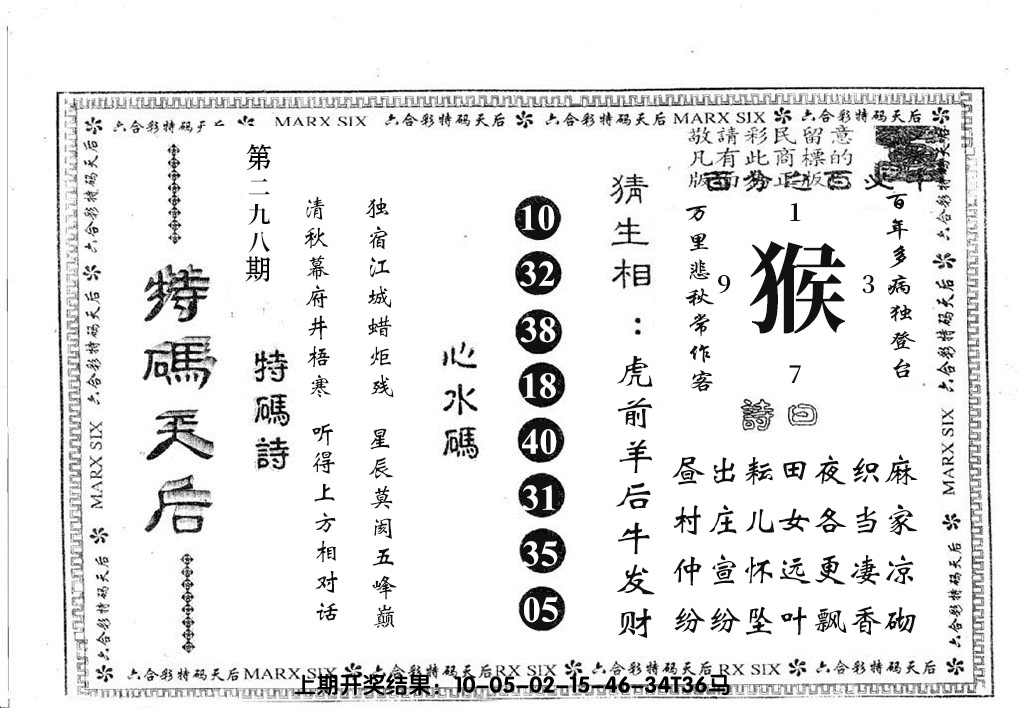 六合彩特码天后 MARX SIX 六合彩特码天后 六合彩特码天后 MARX SIX 六合彩特码天后
敬請彩民留意
凡有此商標的
版面分正版
百年多病独登台
万里悲秋常作客
1
9
猴
3
7
詩曰
昼出耘田夜织麻
村庄儿女各当家
仲宣怀远更凄凉
纷纷坠叶飘香砌
猜生相：虎前羊后牛发财
10
32
38
18
40
31
35
05
心水碼
独宿江城蜡炬残 星辰莫闵五峰巅
清秋幕府井梧寒 听得上方相对话
特碼詩
第二九八期
特碼天后
六合彩特码天后 六合彩特码天后 MARX SIX 六合彩特码天后
六合彩特码天后 六合彩特码天后 MARX SIX 六合彩特码天后
六合彩特码天后 MARX SIX 六合彩特码天后 RX SIX 六合彩特码天后 RX SIX 六合彩特码天后
上期开奖结果：10-05-02-15-46-34T36马